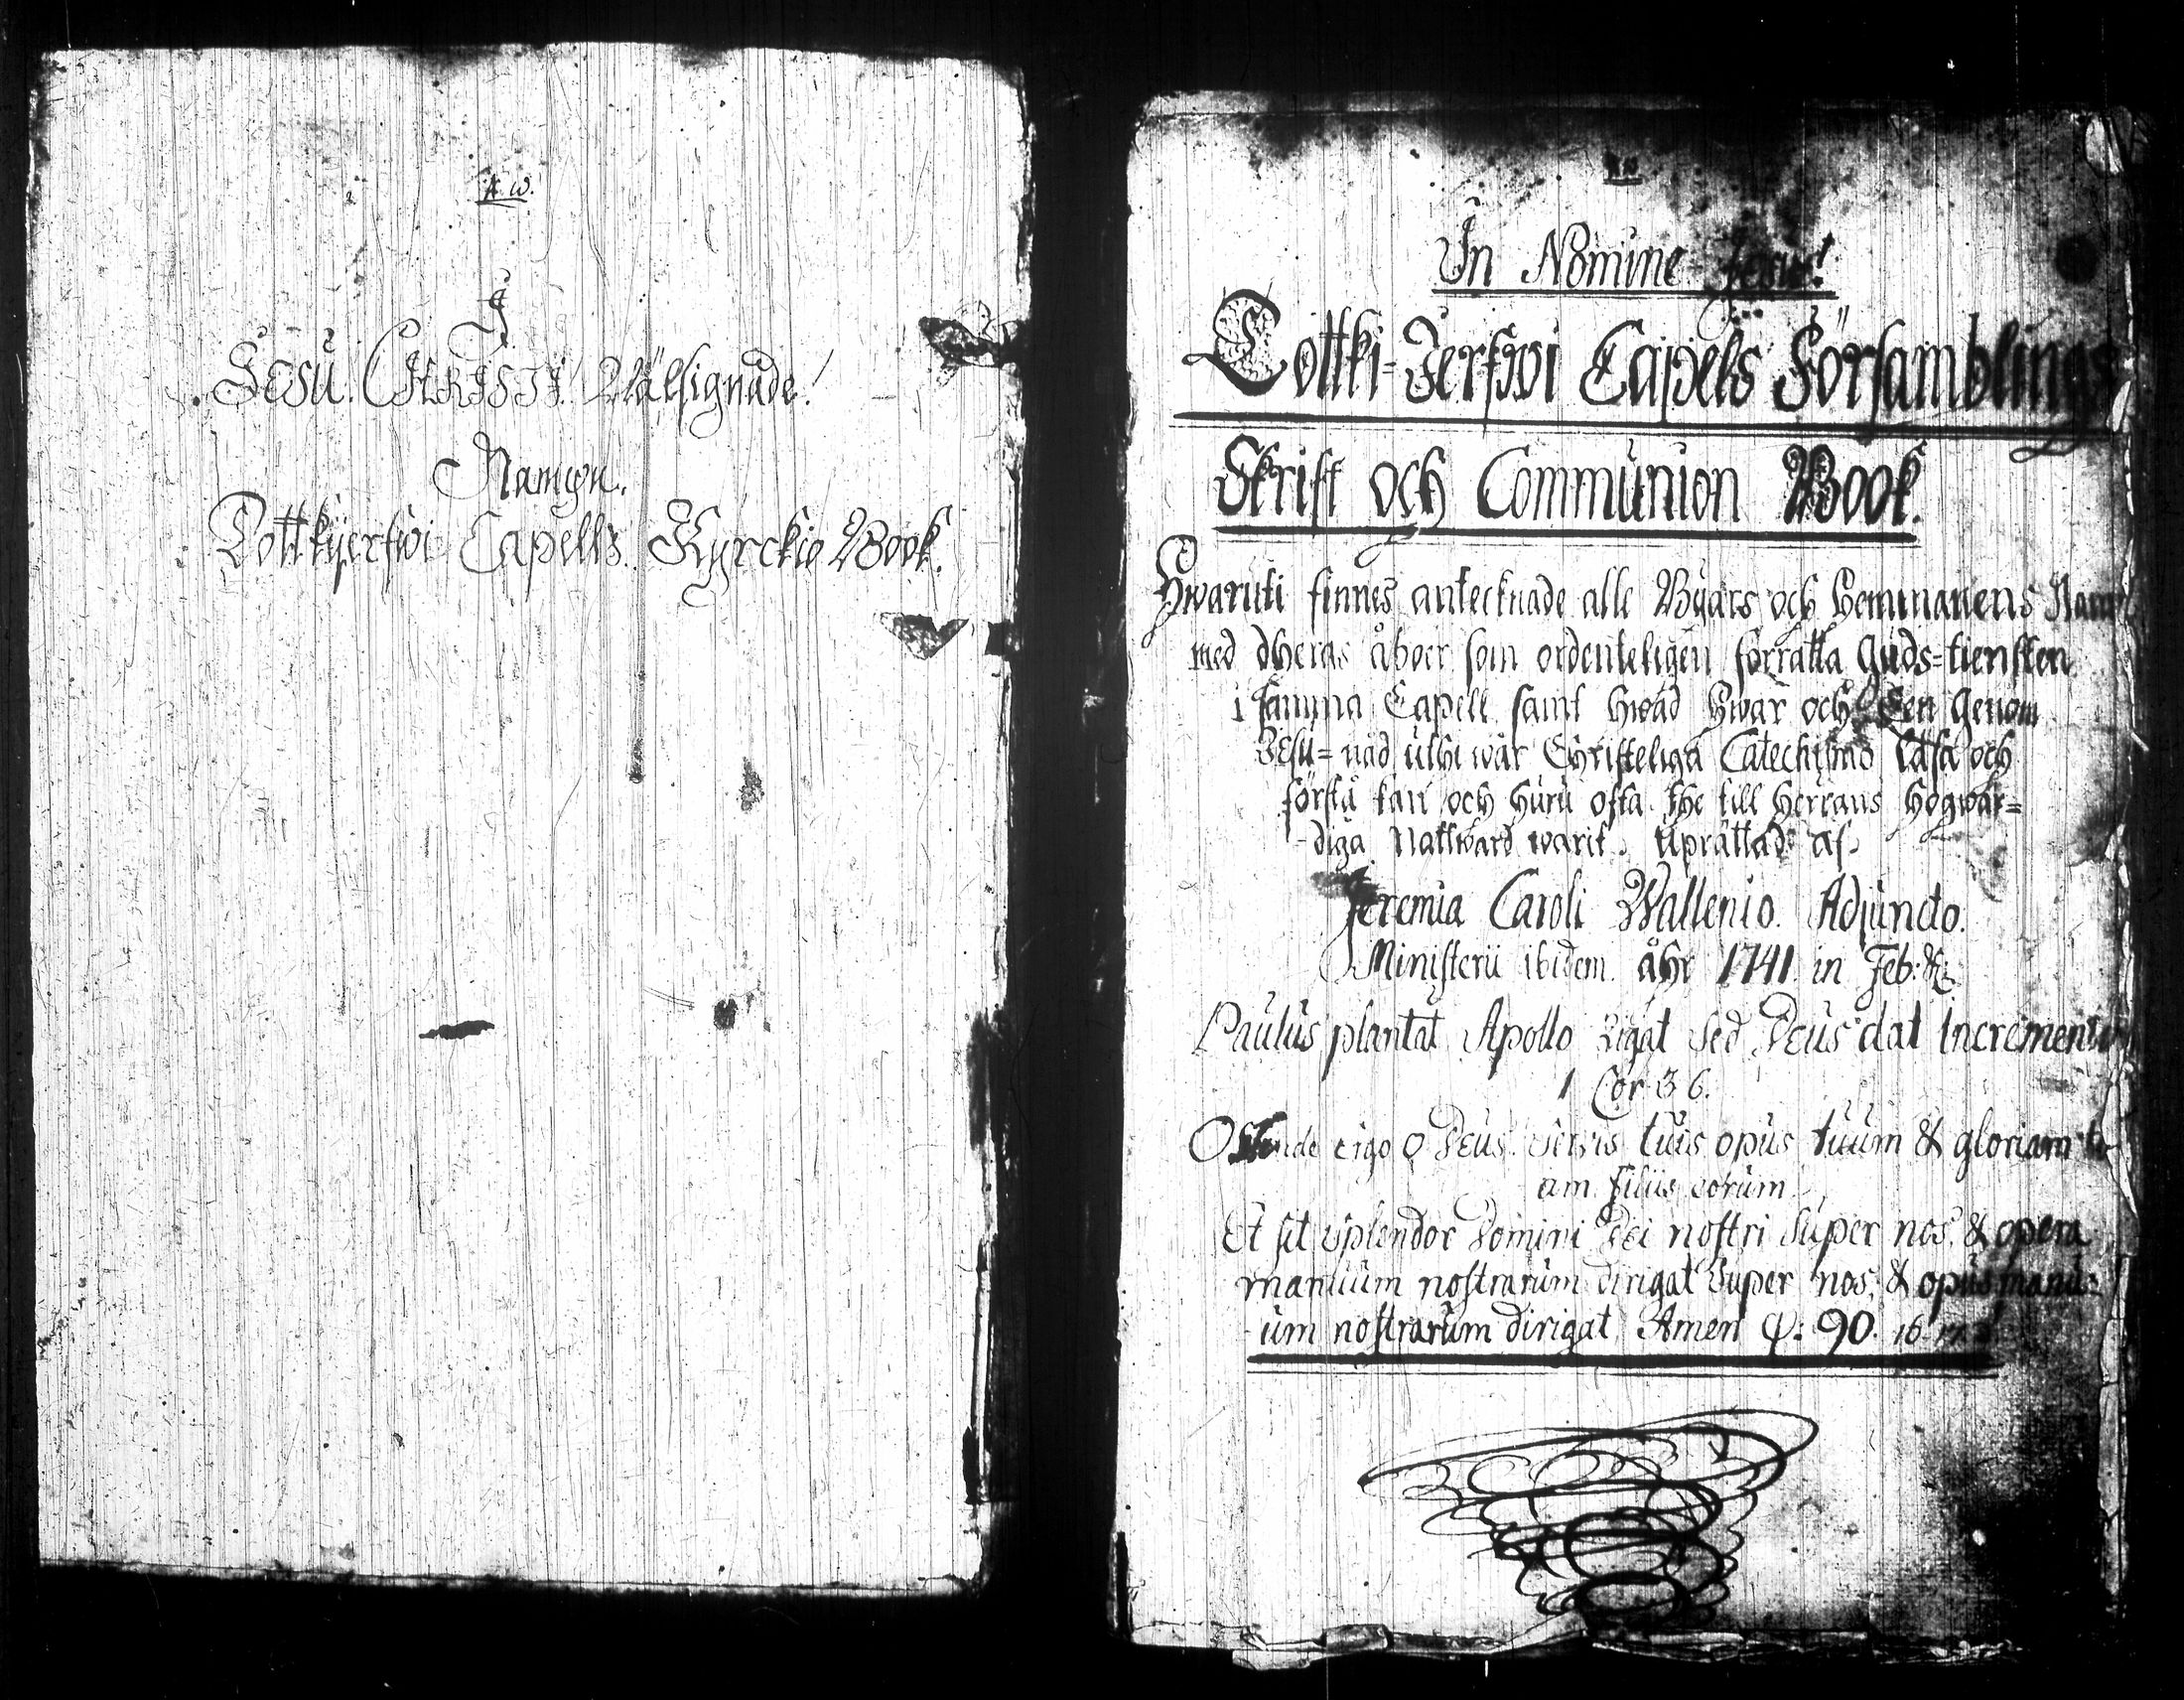 A. W.
I
JESU. CHRISTI! Wälsignade!
Nampn.
Lottkijerfwi Capells. Kyrckio Book.
In Nomine Jesu!
Lottki-Jerfwi Capels Församblings
Skrift och Communion Book.
Hwaruti finnes antecknade alle Byars och Hemmanens Namn
med dheras åboer som ordenteligen förrätta Guds=tiensten
i samma Capell samt hwad hwar och Een genom
JEsu=nåd uthi wår Christeliga Catechismo läsa och
förstå kan och huru ofta the till Herrans Högwär=
diga Nattward warit. Uprättad af
Jeremia Caroli Wallenio. Adjuncto.
Ministerii ibidem. åhr 1741. in Feb:
Paulus plantat Apollo rigat sed Deus dat Incrementum
1 Cor 3 6.
Ostende ergo O Deus. servis tuis opus tuum & gloriam tu
am filiis eorum
Et sit splendor Domini Dei nostri super nos, & opera
manuum nostrarum dirigat super nos, & opus manu-
um nostrarum dirigat Amen Ψ: 90. 16